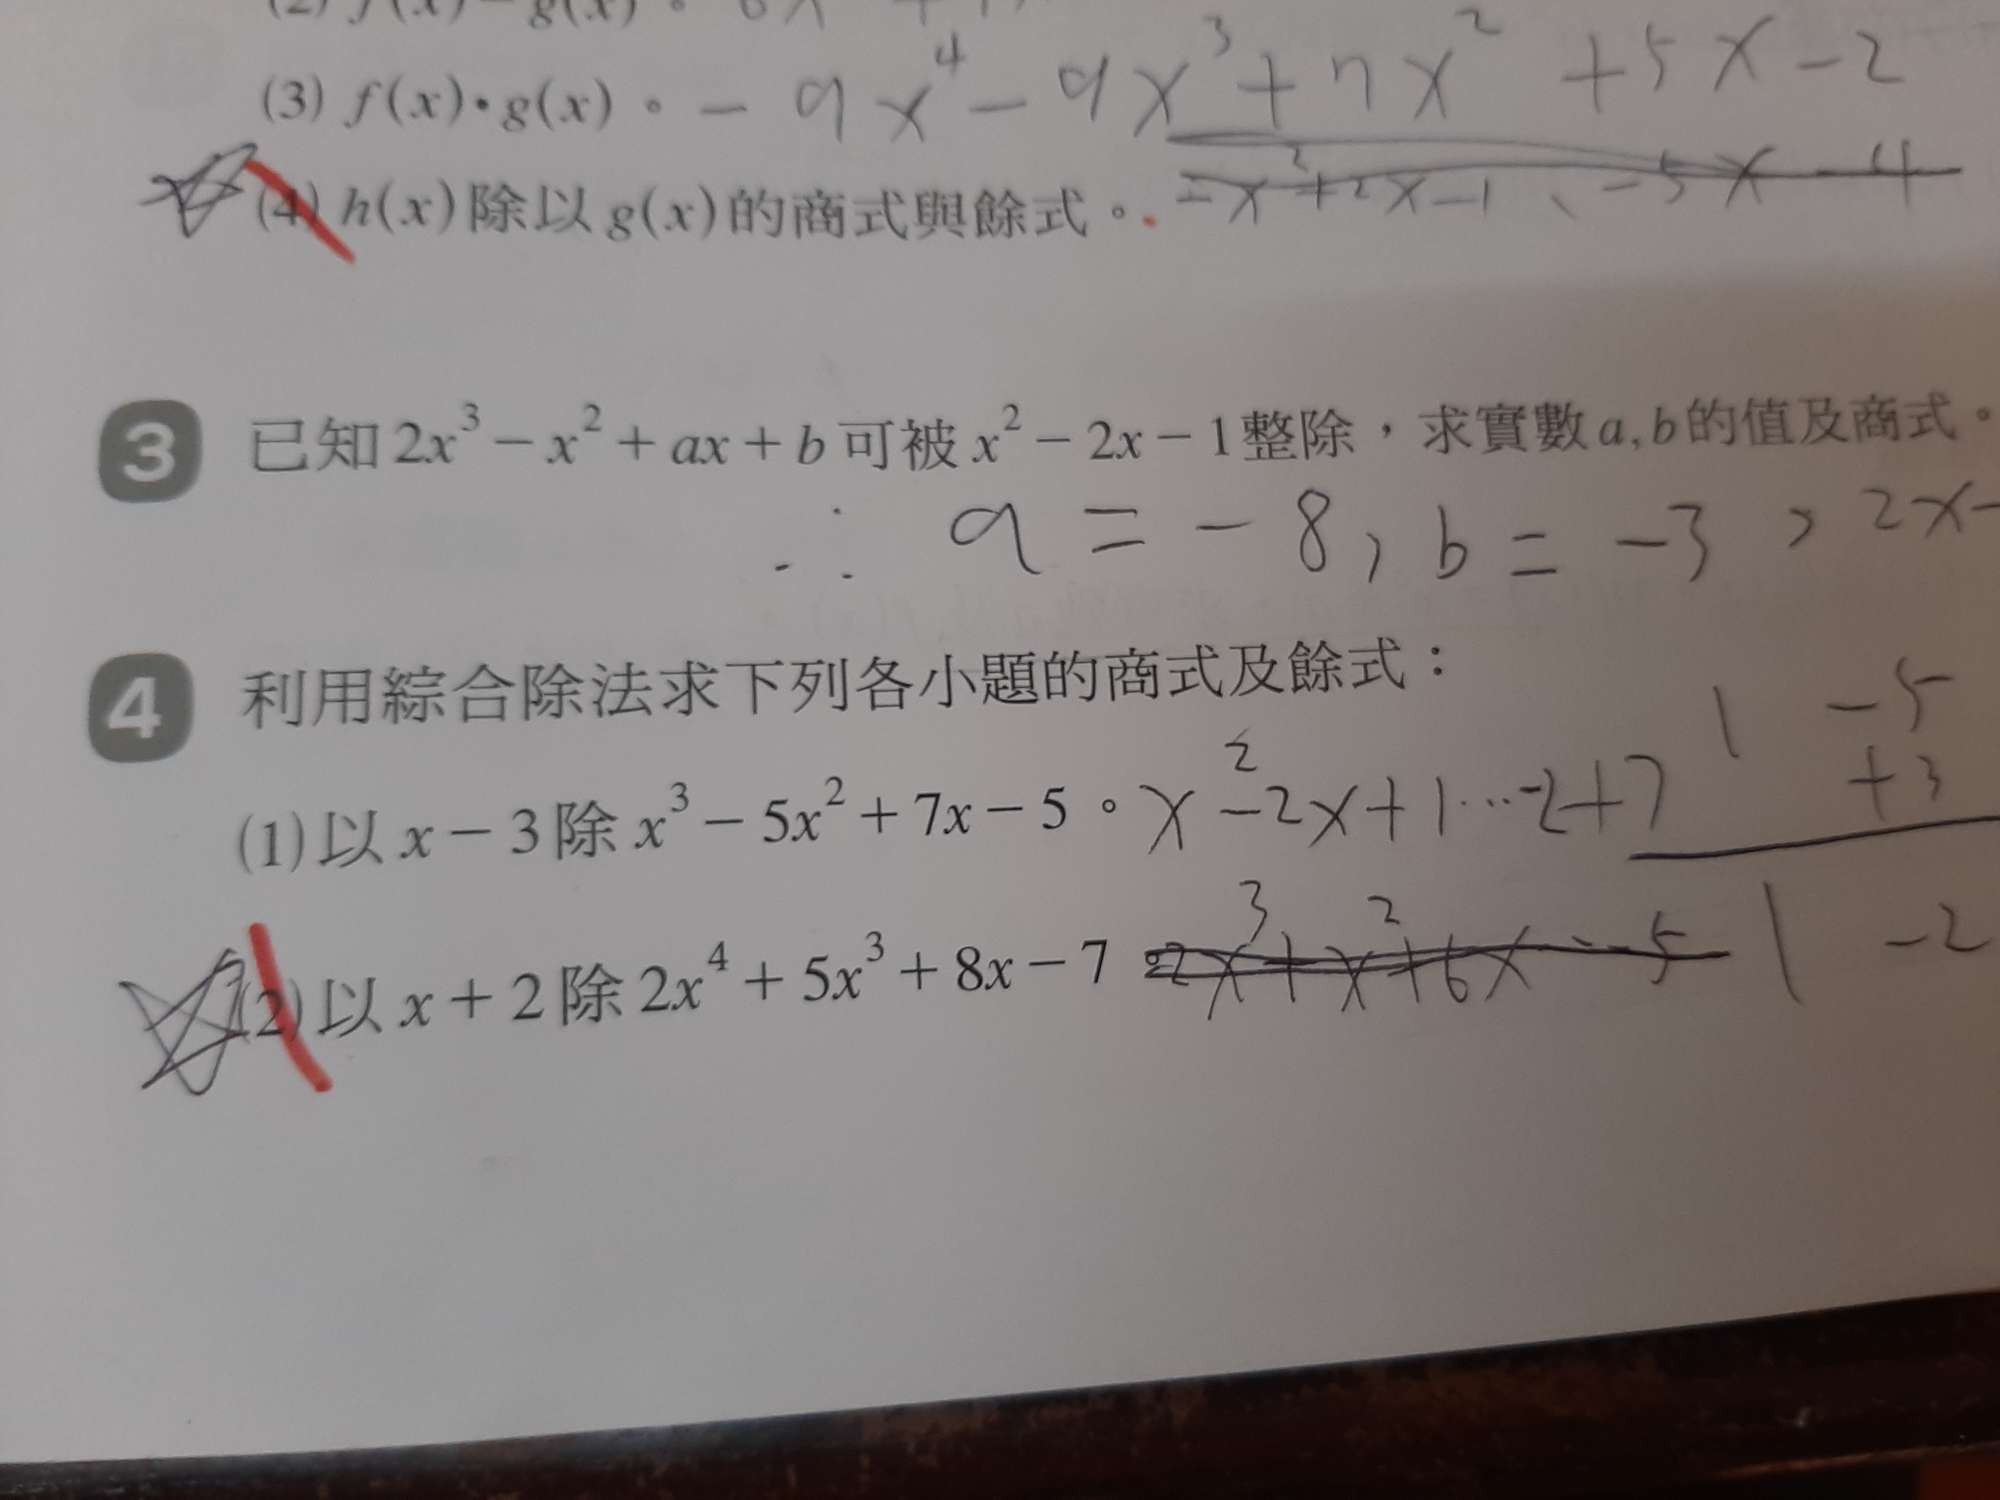 (3) f(x)·g(x)。 -9x⁴-9x³+7x²+5x-2
(4) h(x)除以g(x)的商式與餘式。 -x²+2x-1、-5x-4
3 已知2x³-x²+ax+b可被x²-2x-1整除,求實數a,b的值及商式。
∴ a=-8, b=-3, 2x-
4 利用綜合除法求下列各小題的商式及餘式:
1 -5
(1)以x-3除x³-5x²+7x-5。 x²-2x+1...-2 +7 +3
(2)以x+2除2x⁴+5x³+8x-7。 2x³+x²+6x 5 1 -2